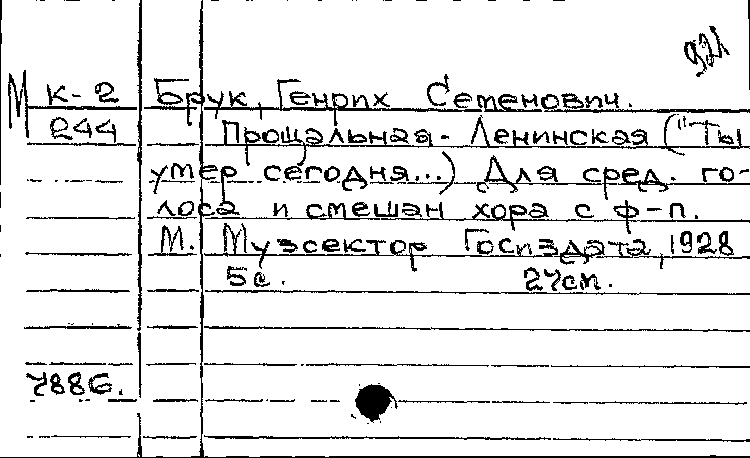 921
М К-2 Брук, Генрих Семенович.
244 Прощальная - Ленинская ("Ты
умер сегодня...) Для сред. го-
лоса и смешан хора с ф-п.
М. Музсектор Госиздата, 1928
5с. 27см.
7886.